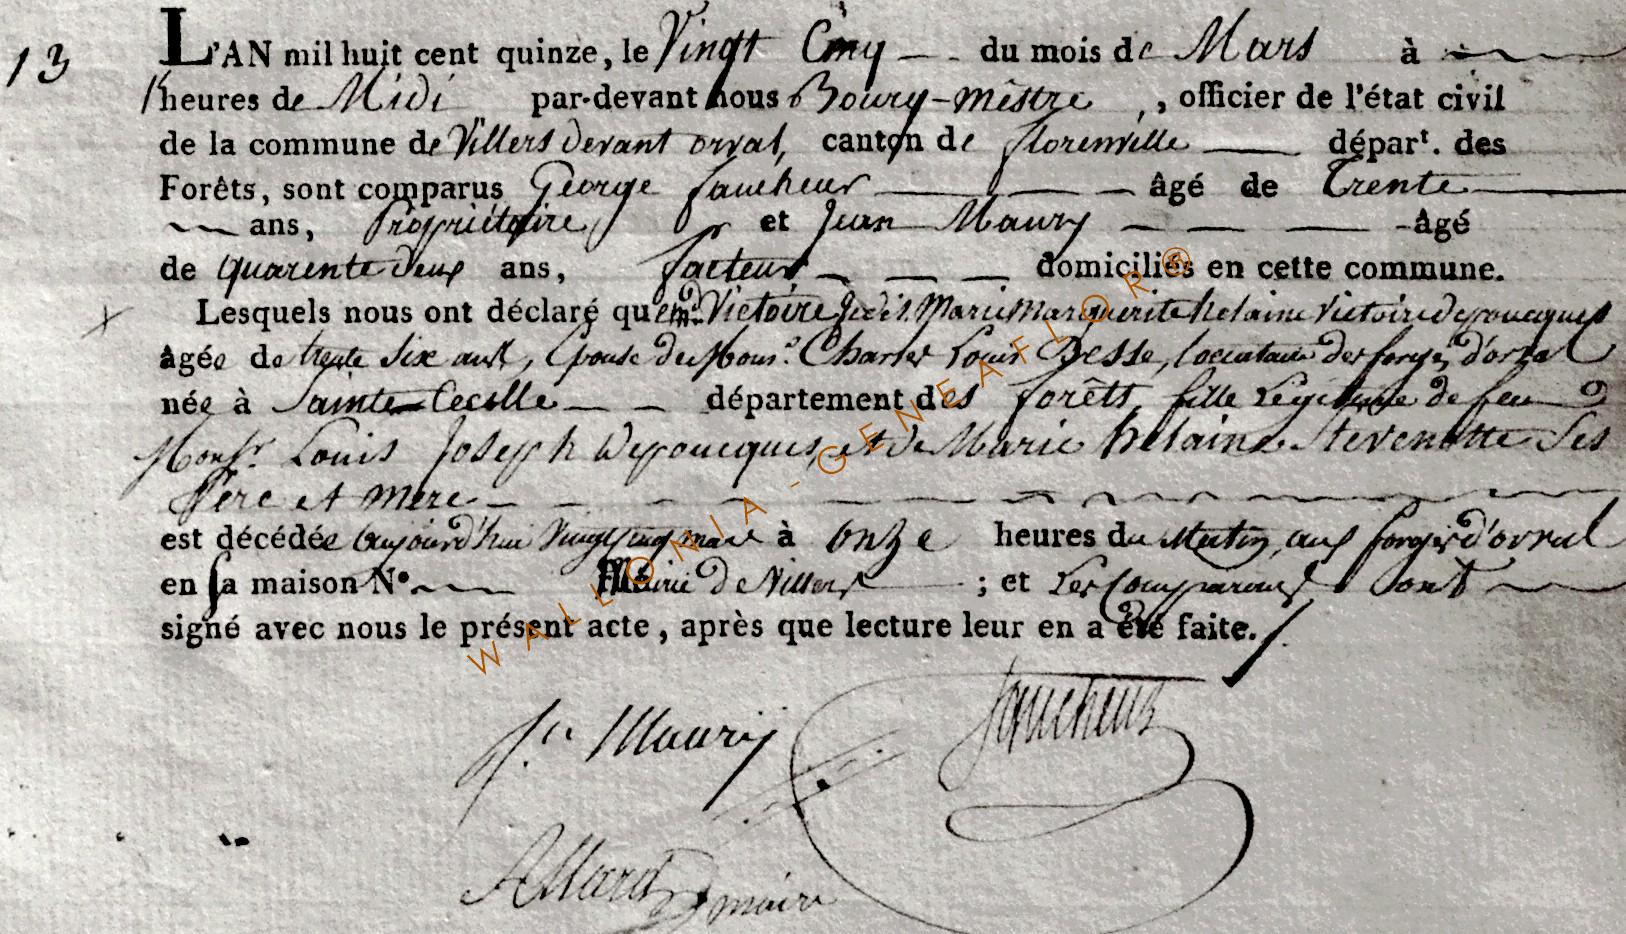 13
L'AN mil huit cent quinze, le Vingt Cinq du mois de Mars à
heures de Midi par-devant nous Bourg-mêstre, officier de l'état civil
de la commune de Villers devant orval, canton de florenville départ. des
Forêts, sont comparus George faucheur âgé de Trente
ans, Propriétaire et Jean Maury âgé
de quarente deux ans, facteur domiciliés en cette commune.
Lesquels nous ont déclaré que Victoire Marie Marguerite helaine Victoire depoucques
âgée de trente six ans, Epouse de Mons. Charles Louis Desse, Locataire des forges d'orval
née à Sainte Cecille département des forêts, fille Legitime de feu
Monsr. Louis Joseph depoucques, et de Marie helaine Stevenotte Ses
Père et mère
est décédée aujourd'hui Vingt cinq mars à onze heures du Matin, aux forges d'orval
en sa maison N° Mairie de Villers ; et Les Comparans ont
signé avec nous le présent acte, après que lecture leur en a été faite.
Maurÿ
faucheur
Allard maire
WALLONIA-GENEAFLOR®